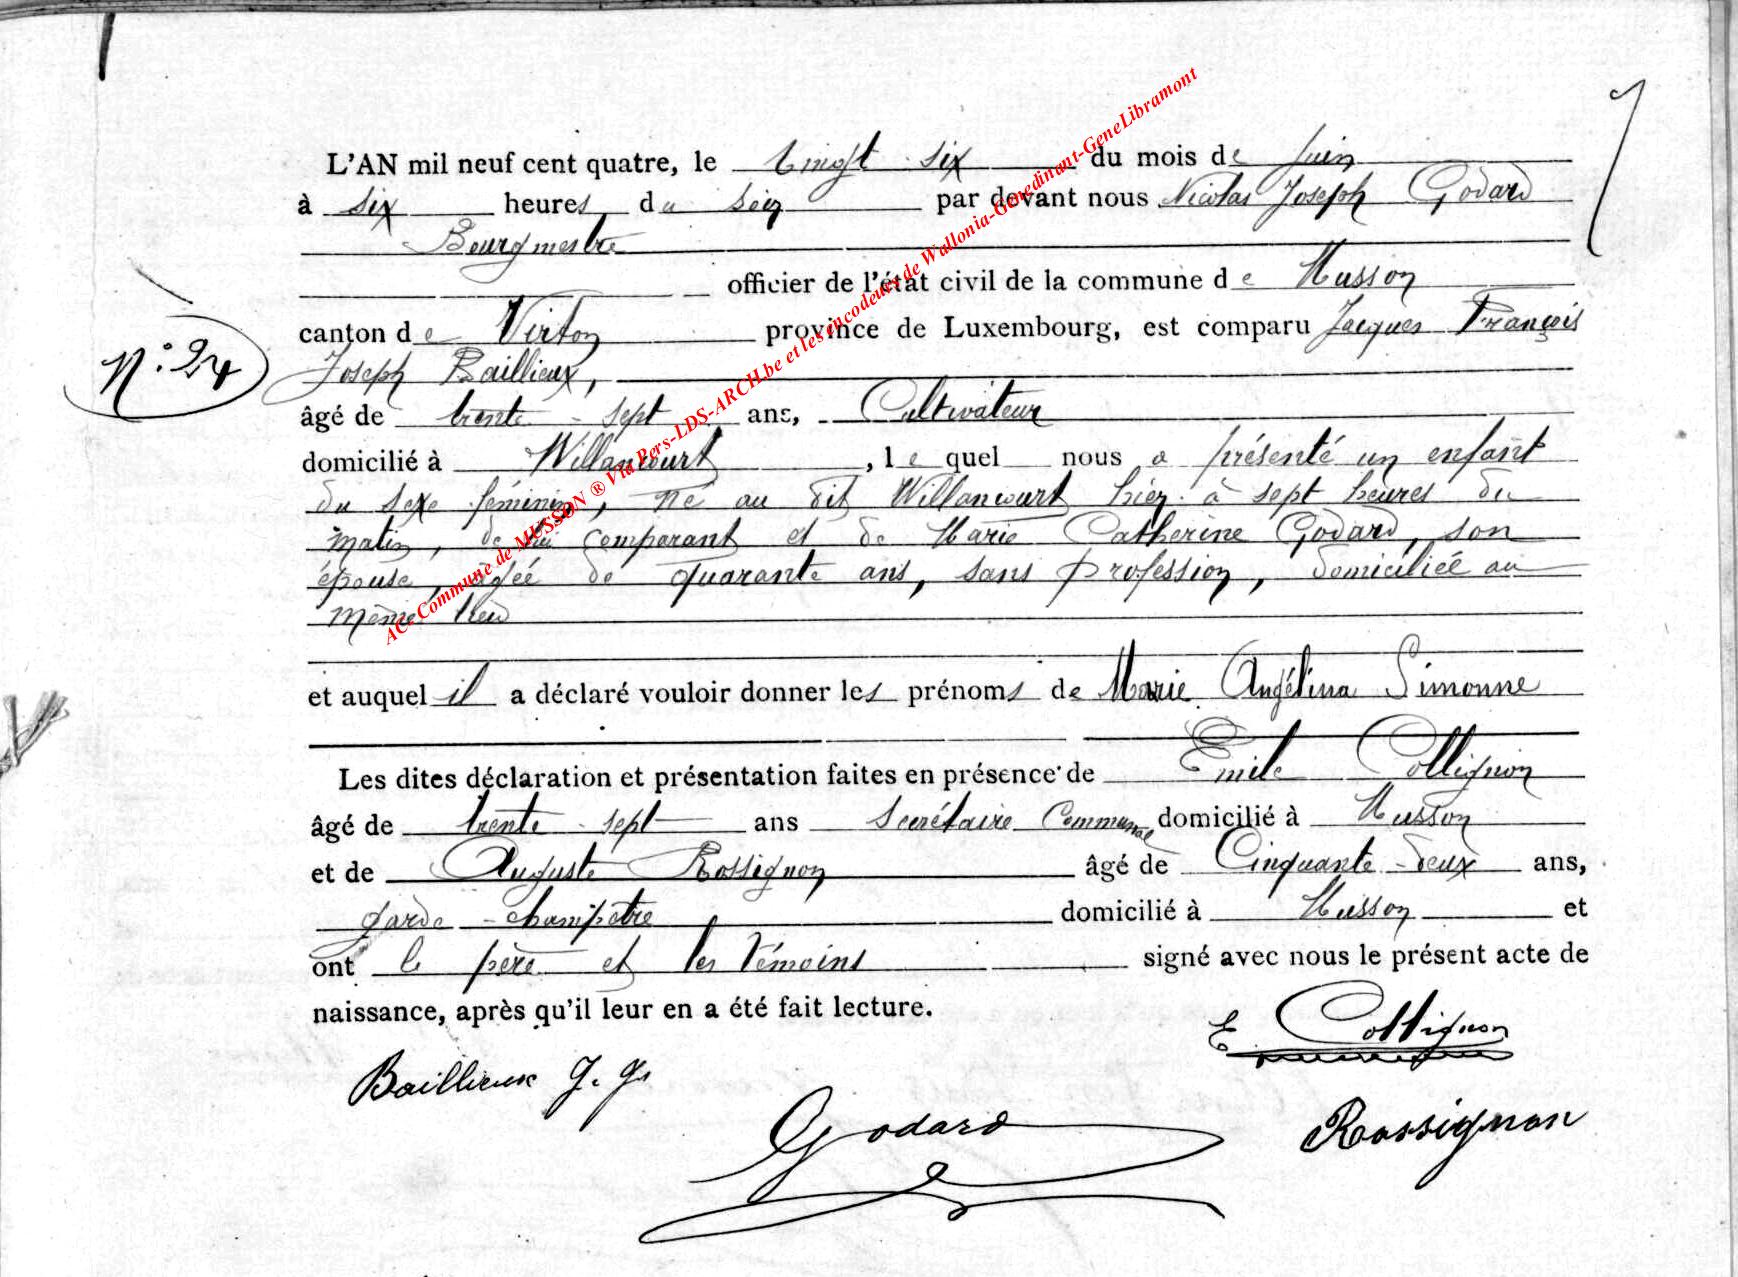 L'AN mil neuf cent quatre, le vingt six du mois de juin
à six heures du soir par devant nous Nicolas Joseph Godard
Bourgmestre
officier de l'état civil de la commune de Musson
N° 24
canton de Virton province de Luxembourg, est comparu Jacques François
Joseph Baillieux,
âgé de trente-sept ans, Cultivateur
domicilié à Willancourt, lequel nous a présenté un enfant
du sexe féminin, né au dit Willancourt hier à sept heures du
matin, de lui comparant et de Marie Catherine Godard, son
épouse, âgée de quarante ans, sans profession, domiciliée au
même lieu
et auquel il a déclaré vouloir donner les prénoms de Marie Angélina Simonne
Les dites déclaration et présentation faites en présence de Emile Collignon
âgé de trente-sept ans Secrétaire Communal domicilié à Musson
et de Auguste Rossignon âgé de Cinquante-deux ans,
garde-champêtre domicilié à Musson et
ont le père et les témoins signé avec nous le présent acte de
naissance, après qu'il leur en a été fait lecture.
E Collignon
Baillieux J. J.
Godard
Rossignon
AC-Commune de MUSSON ® Via Pers-LDS-ARCH.be et les encodeurs de Wallonia-Genedinant-GeneLibramont